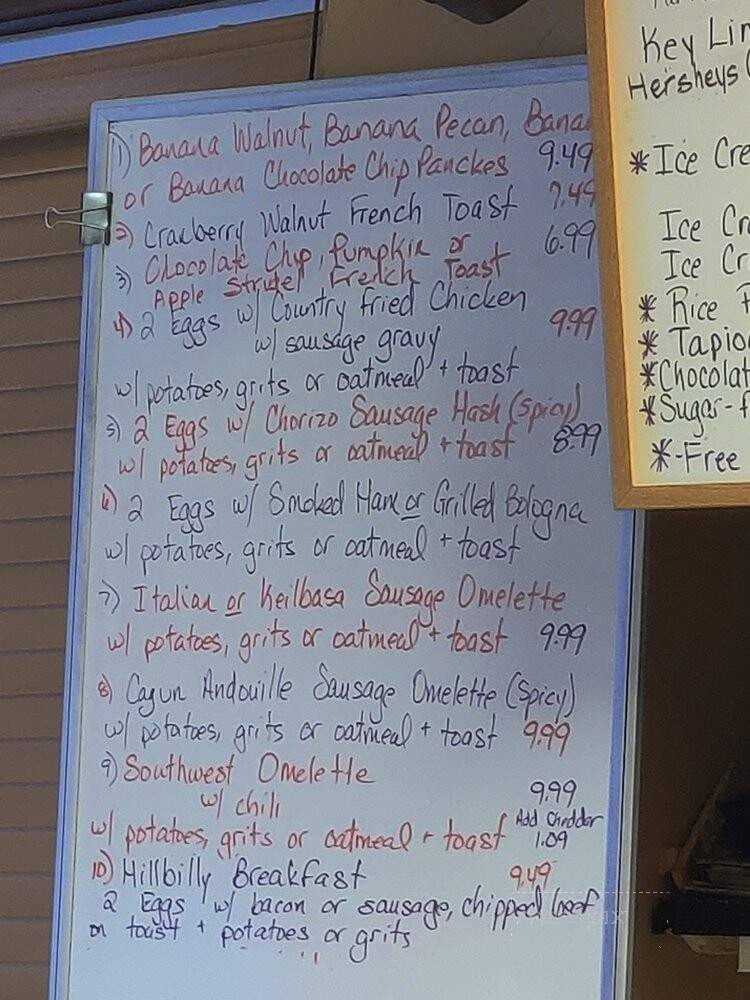 1) Banana Walnut, Banana Pecan, Bana
or Banana Chocolate Chip Panckes 9.49
2) Cranberry Walnut French Toast 7.49
3) Chocolate Chip, Pumpkin or 6.99
Apple Strudel French Toast
4) 2 Eggs w/ Country Fried Chicken
w/ sausage gravy 9.99
w/ potatoes, grits or oatmeal + toast
5) 2 Eggs w/ Chorizo Sausage Hash (Spicy)
w/ potatoes, grits or oatmeal + toast 8.99
6) 2 Eggs w/ Smoked Ham or Grilled Bologna
w/ potatoes, grits or oatmeal + toast
7) Italian or Keilbasa Sausage Omelette
w/ potatoes, grits or oatmeal + toast 9.99
8) Cajun Andouille Sausage Omelette (Spicy)
w/ potatoes, grits or oatmeal + toast 9.99
9) Southwest Omelette
w/ chili 9.99
Add Cheddar
w/ potatoes, grits or oatmeal + toast 1.09
10) Hillbilly Breakfast 9.49
2 Eggs w/ bacon or sausage, chipped beef
on toast + potatoes or grits
Key Lim
Hersheys
* Ice Cre
Ice Cr
Ice Cr
* Rice P
* Tapio
* Chocolat
* Sugar-f
*-Free